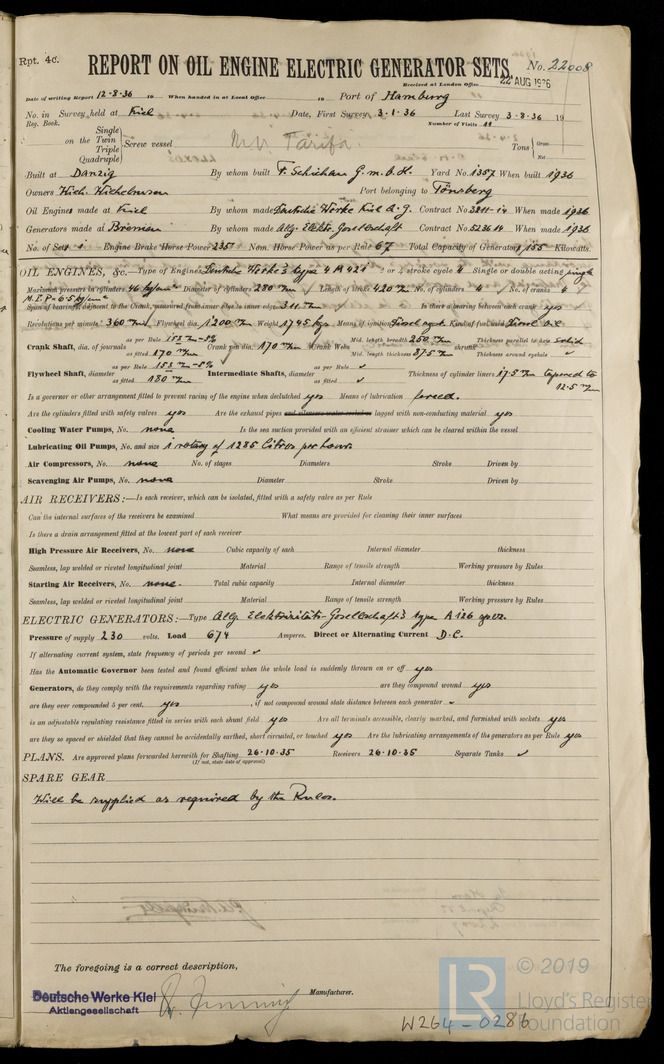 Rpt. 4c.
REPORT ON OIL ENGINE ELECTRIC GENERATOR SETS. No. 22008
Received at London Office 22 AUG 1936
Date of writing Report 12-8-36 19 When handed in at Local Office 19 Port of Hamburg
No. in Survey held at Kiel Date, First Survey 3-1-36 Last Survey 3-8-36 19
Reg. Book. Number of Visits 11
on the Single Twin Triple Quadruple Screw vessel M.V. Tarifa Tons Gross Net
Built at Danzig By whom built F. Schichau G.m.b.H. Yard No. 1357 When built 1936
Owners Wilh. Wilhelmsen Port belonging to Tönsberg
Oil Engines made at Kiel By whom made Deutsche Werke Kiel A.G. Contract No. When made 1936
Generators made at Bremen By whom made Allg. Elektr. Gesellschaft Contract No. 523614 When made 1936
No. of Sets 1 Engine Brake Horse Power 235 Nom. Horse Power as per Rule 67 Total Capacity of Generators 155 Kilowatts.
OIL ENGINES, &c.—Type of Engines Deutsche Werke's type 4 M 42 2 or 4 stroke cycle 4 Single or double acting single
Maximum pressure in cylinders 46 kg/cm² Diameter of cylinders 280 m/m Length of stroke 420 m/m No. of cylinders 4 No. of cranks 4
M.I.P. 6.5 kg/cm²
Span of bearings, adjacent to the Crank, measured from inner edge to inner edge 311 m/m Is there a bearing between each crank yes
Revolutions per minute 360 Flywheel dia. 1200 m/m Weight 1745 kgs Means of ignition Diesel cycle Kind of fuel used Diesel oil
Crank Shaft, dia. of journals as per Rule 153 m/m -5% as fitted 170 m/m Crank pin dia. 170 m/m Crank Webs Mid. length breadth 250 m/m Mid. length thickness 87.5 m/m shrunk Thickness parallel to axis solid Thickness around eyehole ✓
Flywheel Shaft, diameter as per Rule 153 m/m -5% as fitted 180 m/m Intermediate Shafts, diameter as per Rule ✓ as fitted ✓ Thickness of cylinder liners 17.5 m/m tapered to 12.5 m/m
Is a governor or other arrangement fitted to prevent racing of the engine when declutched yes Means of lubrication forced.
Are the cylinders fitted with safety valves yes Are the exhaust pipes and silencers water cooled or lagged with non-conducting material yes
Cooling Water Pumps, No. none Is the sea suction provided with an efficient strainer which can be cleared within the vessel
Lubricating Oil Pumps, No. and size 1 rotary of 1285 Litres per hour
Air Compressors, No. none No. of stages Diameters Stroke Driven by
Scavenging Air Pumps, No. none Diameter Stroke Driven by
AIR RECEIVERS:—Is each receiver, which can be isolated, fitted with a safety valve as per Rule
Can the internal surfaces of the receivers be examined What means are provided for cleaning their inner surfaces
Is there a drain arrangement fitted at the lowest part of each receiver
High Pressure Air Receivers, No. none Cubic capacity of each Internal diameter thickness
Seamless, lap welded or riveted longitudinal joint Material Range of tensile strength Working pressure by Rules
Starting Air Receivers, No. none. Total cubic capacity Internal diameter thickness
Seamless, lap welded or riveted longitudinal joint Material Range of tensile strength Working pressure by Rules
ELECTRIC GENERATORS:—Type Allg. Elektrizitäts-Gesellschaft's type A 126
Pressure of supply 230 volts. Load 674 Amperes. Direct or Alternating Current D.C.
If alternating current system, state frequency of periods per second ✓
Has the Automatic Governor been tested and found efficient when the whole load is suddenly thrown on or off yes
Generators, do they comply with the requirements regarding rating yes are they compound wound yes
are they over compounded 5 per cent. yes, if not compound wound state distance between each generator ✓
is an adjustable regulating resistance fitted in series with each shunt field yes Are all terminals accessible, clearly marked, and furnished with sockets yes
are they so spaced or shielded that they cannot be accidentally earthed, short circuited, or touched yes Are the lubricating arrangements of the generators as per Rule yes
PLANS. Are approved plans forwarded herewith for Shafting 26-10-35 Receivers 26-10-35 Separate Tanks ✓
(If not, state date of approval)
SPARE GEAR
Will be supplied as required by the Rules.
The foregoing is a correct description,
Deutsche Werke Kiel
Aktiengesellschaft
Manufacturer.
W264-0286
LR © 2019
Lloyd's Register
Foundation